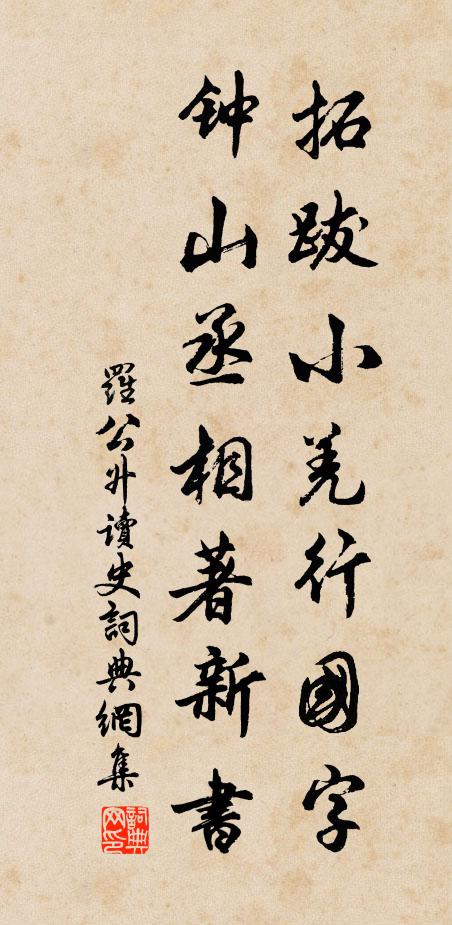 拓跋小羌行國字
钟山丞相著新書
羅公升讀史詞典網集
詞典网印